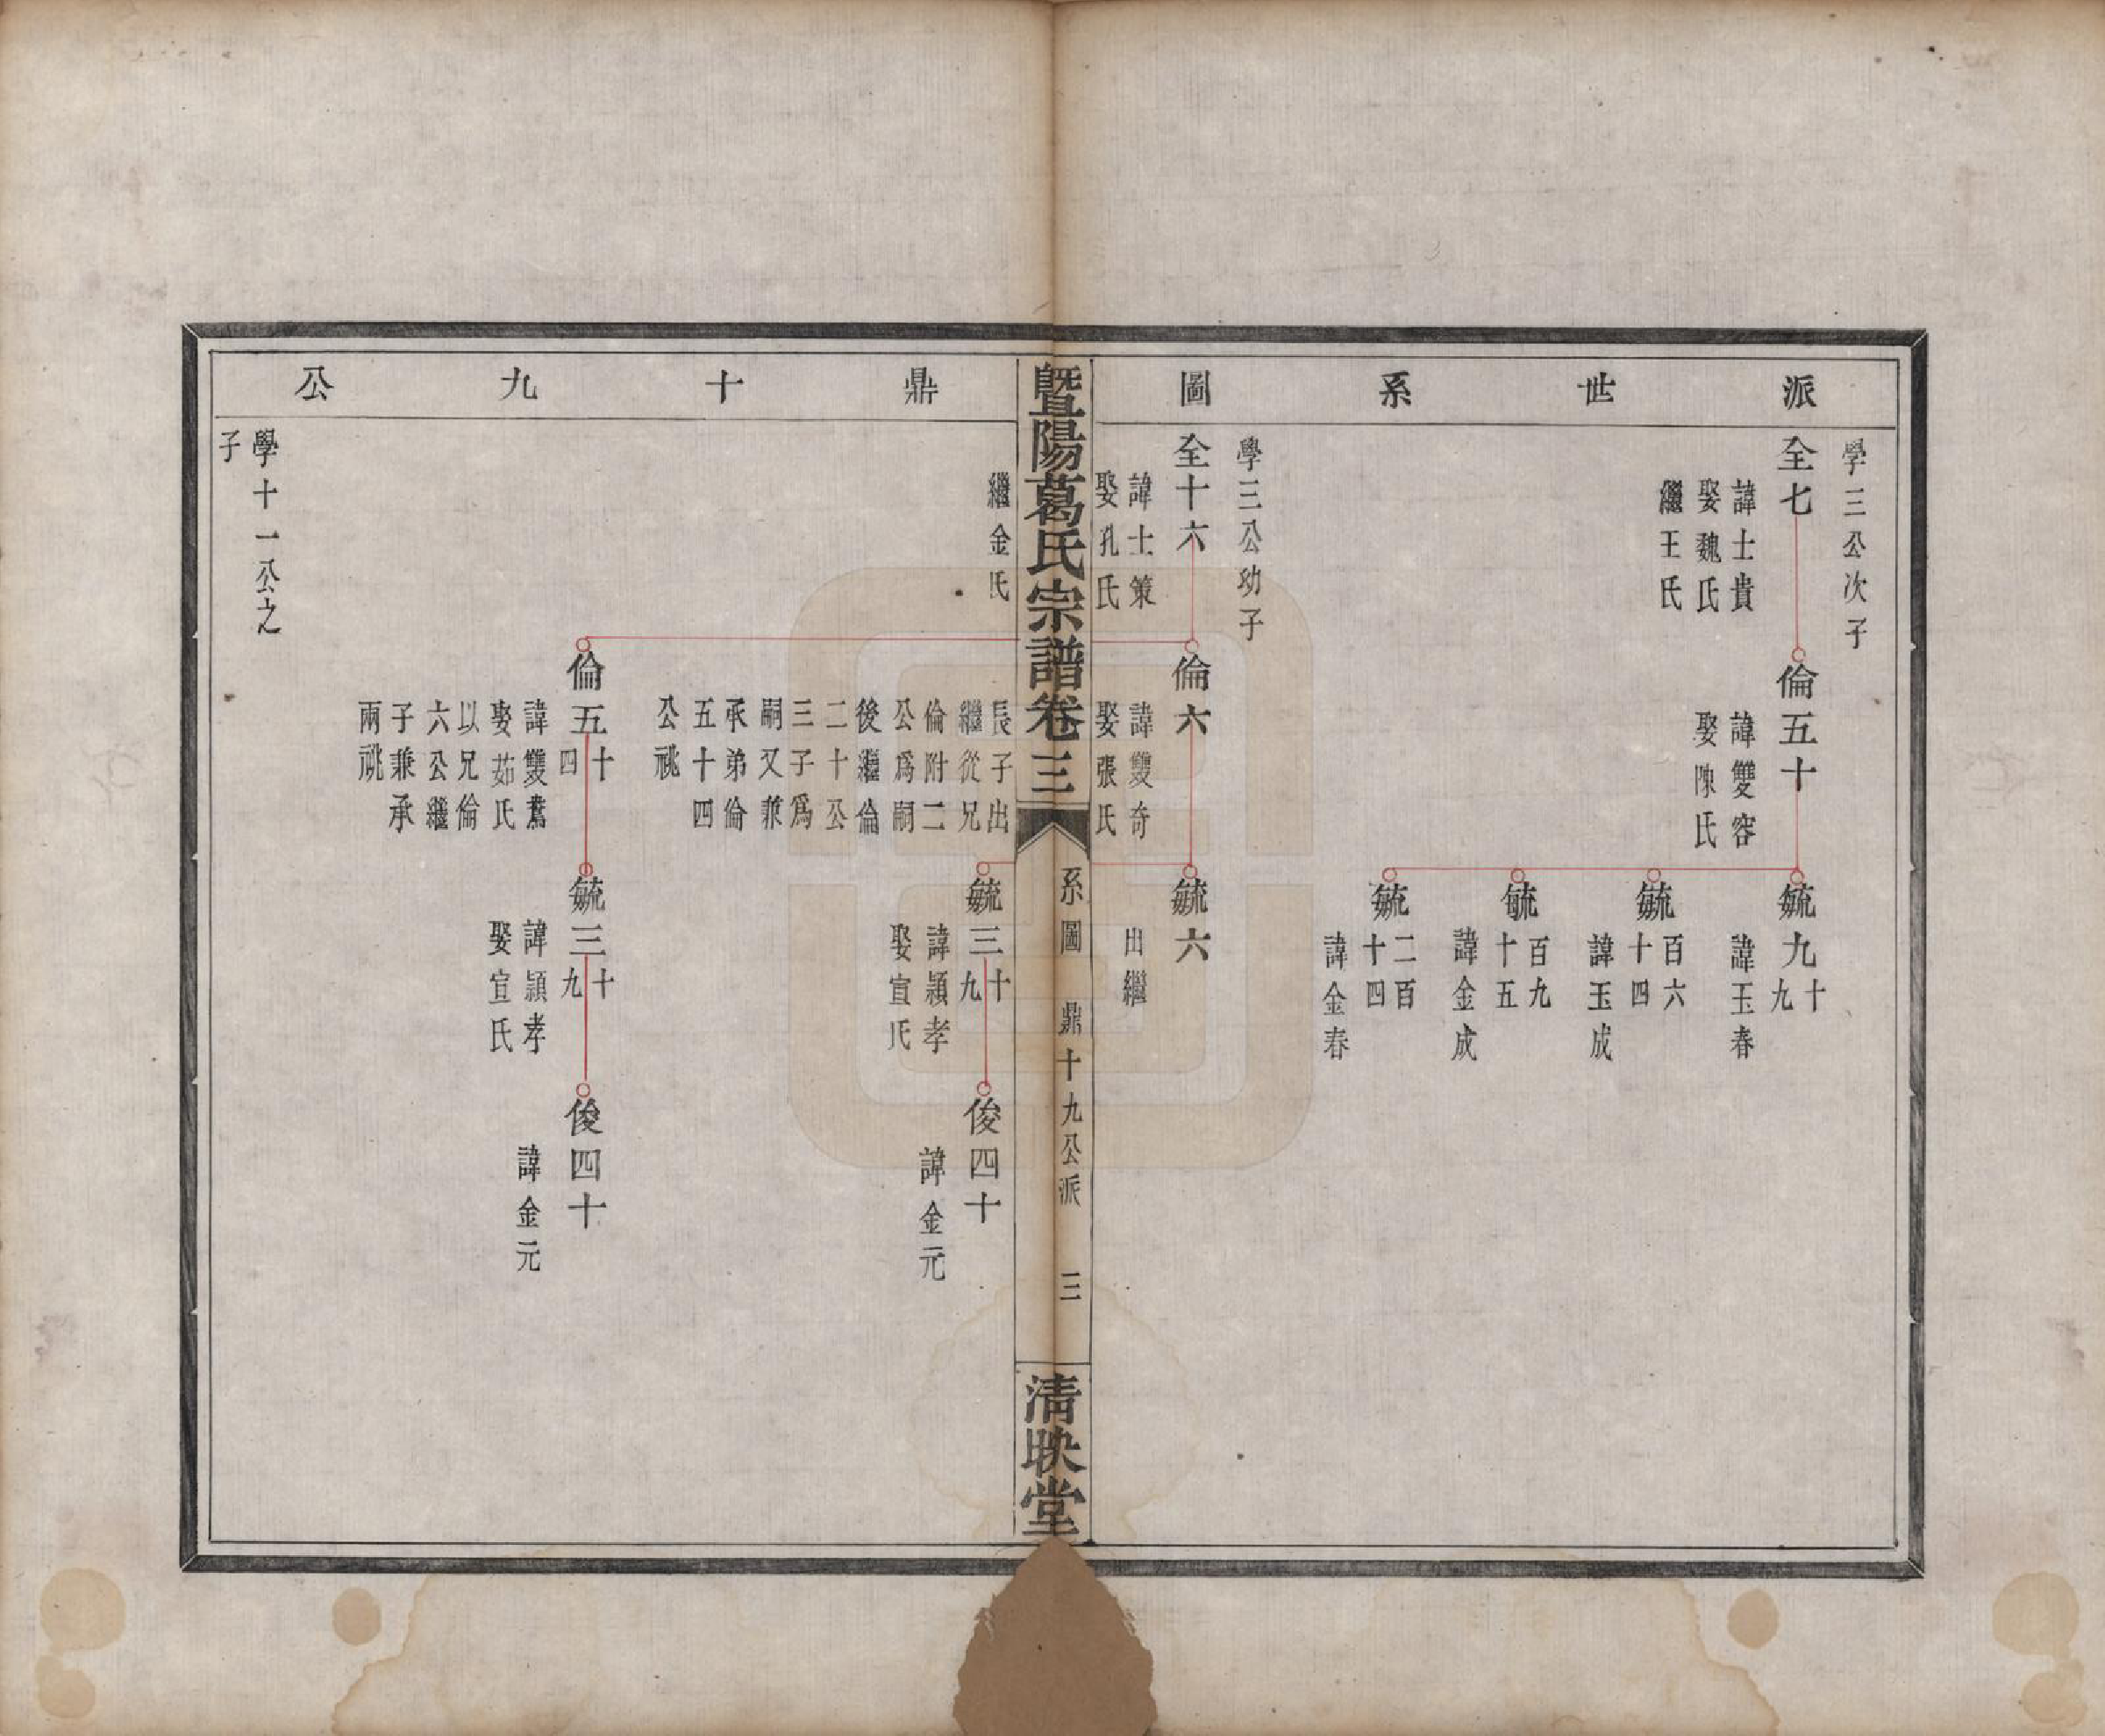 派世系圖
學三公次子
全七
諱士貴
娶魏氏
繼王氏
倫五十
諱雙容
娶陳氏
毓九十九
諱玉春
毓百六十四
諱玉成
毓百九十五
諱金成
毓二百十四
諱金春
學三公幼子
全十六
諱士策
娶孔氏
倫六
諱雙奇
娶張氏
毓六
出繼
暨陽葛氏宗譜卷三
系圖 鼎十九公派 三
清映堂
鼎十九公
繼金氏
長子出
繼從兄
倫附二
公爲嗣
後繼倫
二十公
三子爲
嗣又兼
承弟倫
五十四
公祧
毓三十九
諱潁孝
娶宣氏
俊四十
諱金元
倫五十四
諱雙鴦
娶茹氏
以兄倫
六公繼
子兼承
兩祧
毓三十九
諱潁孝
娶宣氏
俊四十
諱金元
學十一公之
子